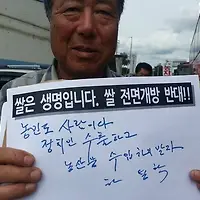 쌀은 생명입니다. 쌀 전면개방 반대!!
농민도 사람이다
정치인 수출하고
농산물 수입하지 말라